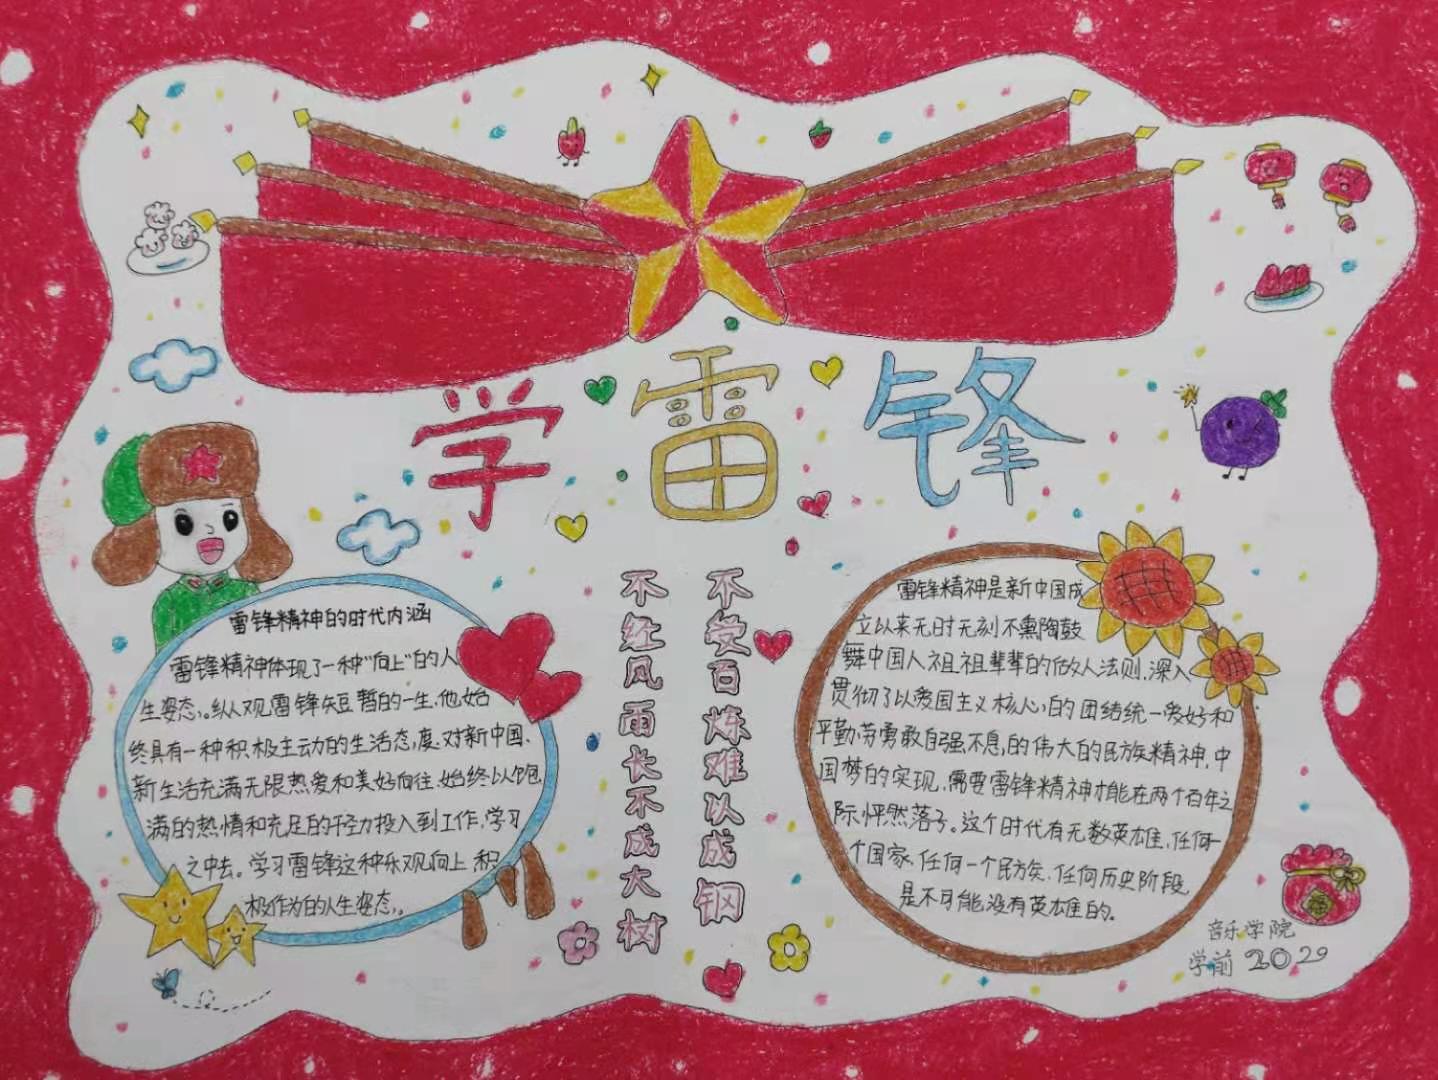 学雷锋
雷锋精神的时代内涵
雷锋精神体现了一种"向上"的人
生姿态。纵观雷锋短暂的一生,他始
终具有一种积极主动的生活态度.对新中国.
新生活充满无限热爱和美好向往.始终以饱
满的热情和充足的干劲投入到工作,学习
之中去。学习雷锋这种乐观向上,积
极作为的人生姿态。
不受百炼难以成钢
不经风雨长不成大树
雷锋精神是新中国成
立以来无时无刻不熏陶鼓
舞中国人祖祖辈辈的做人法则,深入
贯彻了以爱国主义核心的团结统一爱好和
平勤劳勇敢自强不息的伟大的民族精神,中
国梦的实现,需要雷锋精神才能在两个百年之
际怦然落子。这个时代有无数英雄,任何一
个国家,任何一个民族,任何历史阶段
是不可能没有英雄的。
音乐学院
学前2029